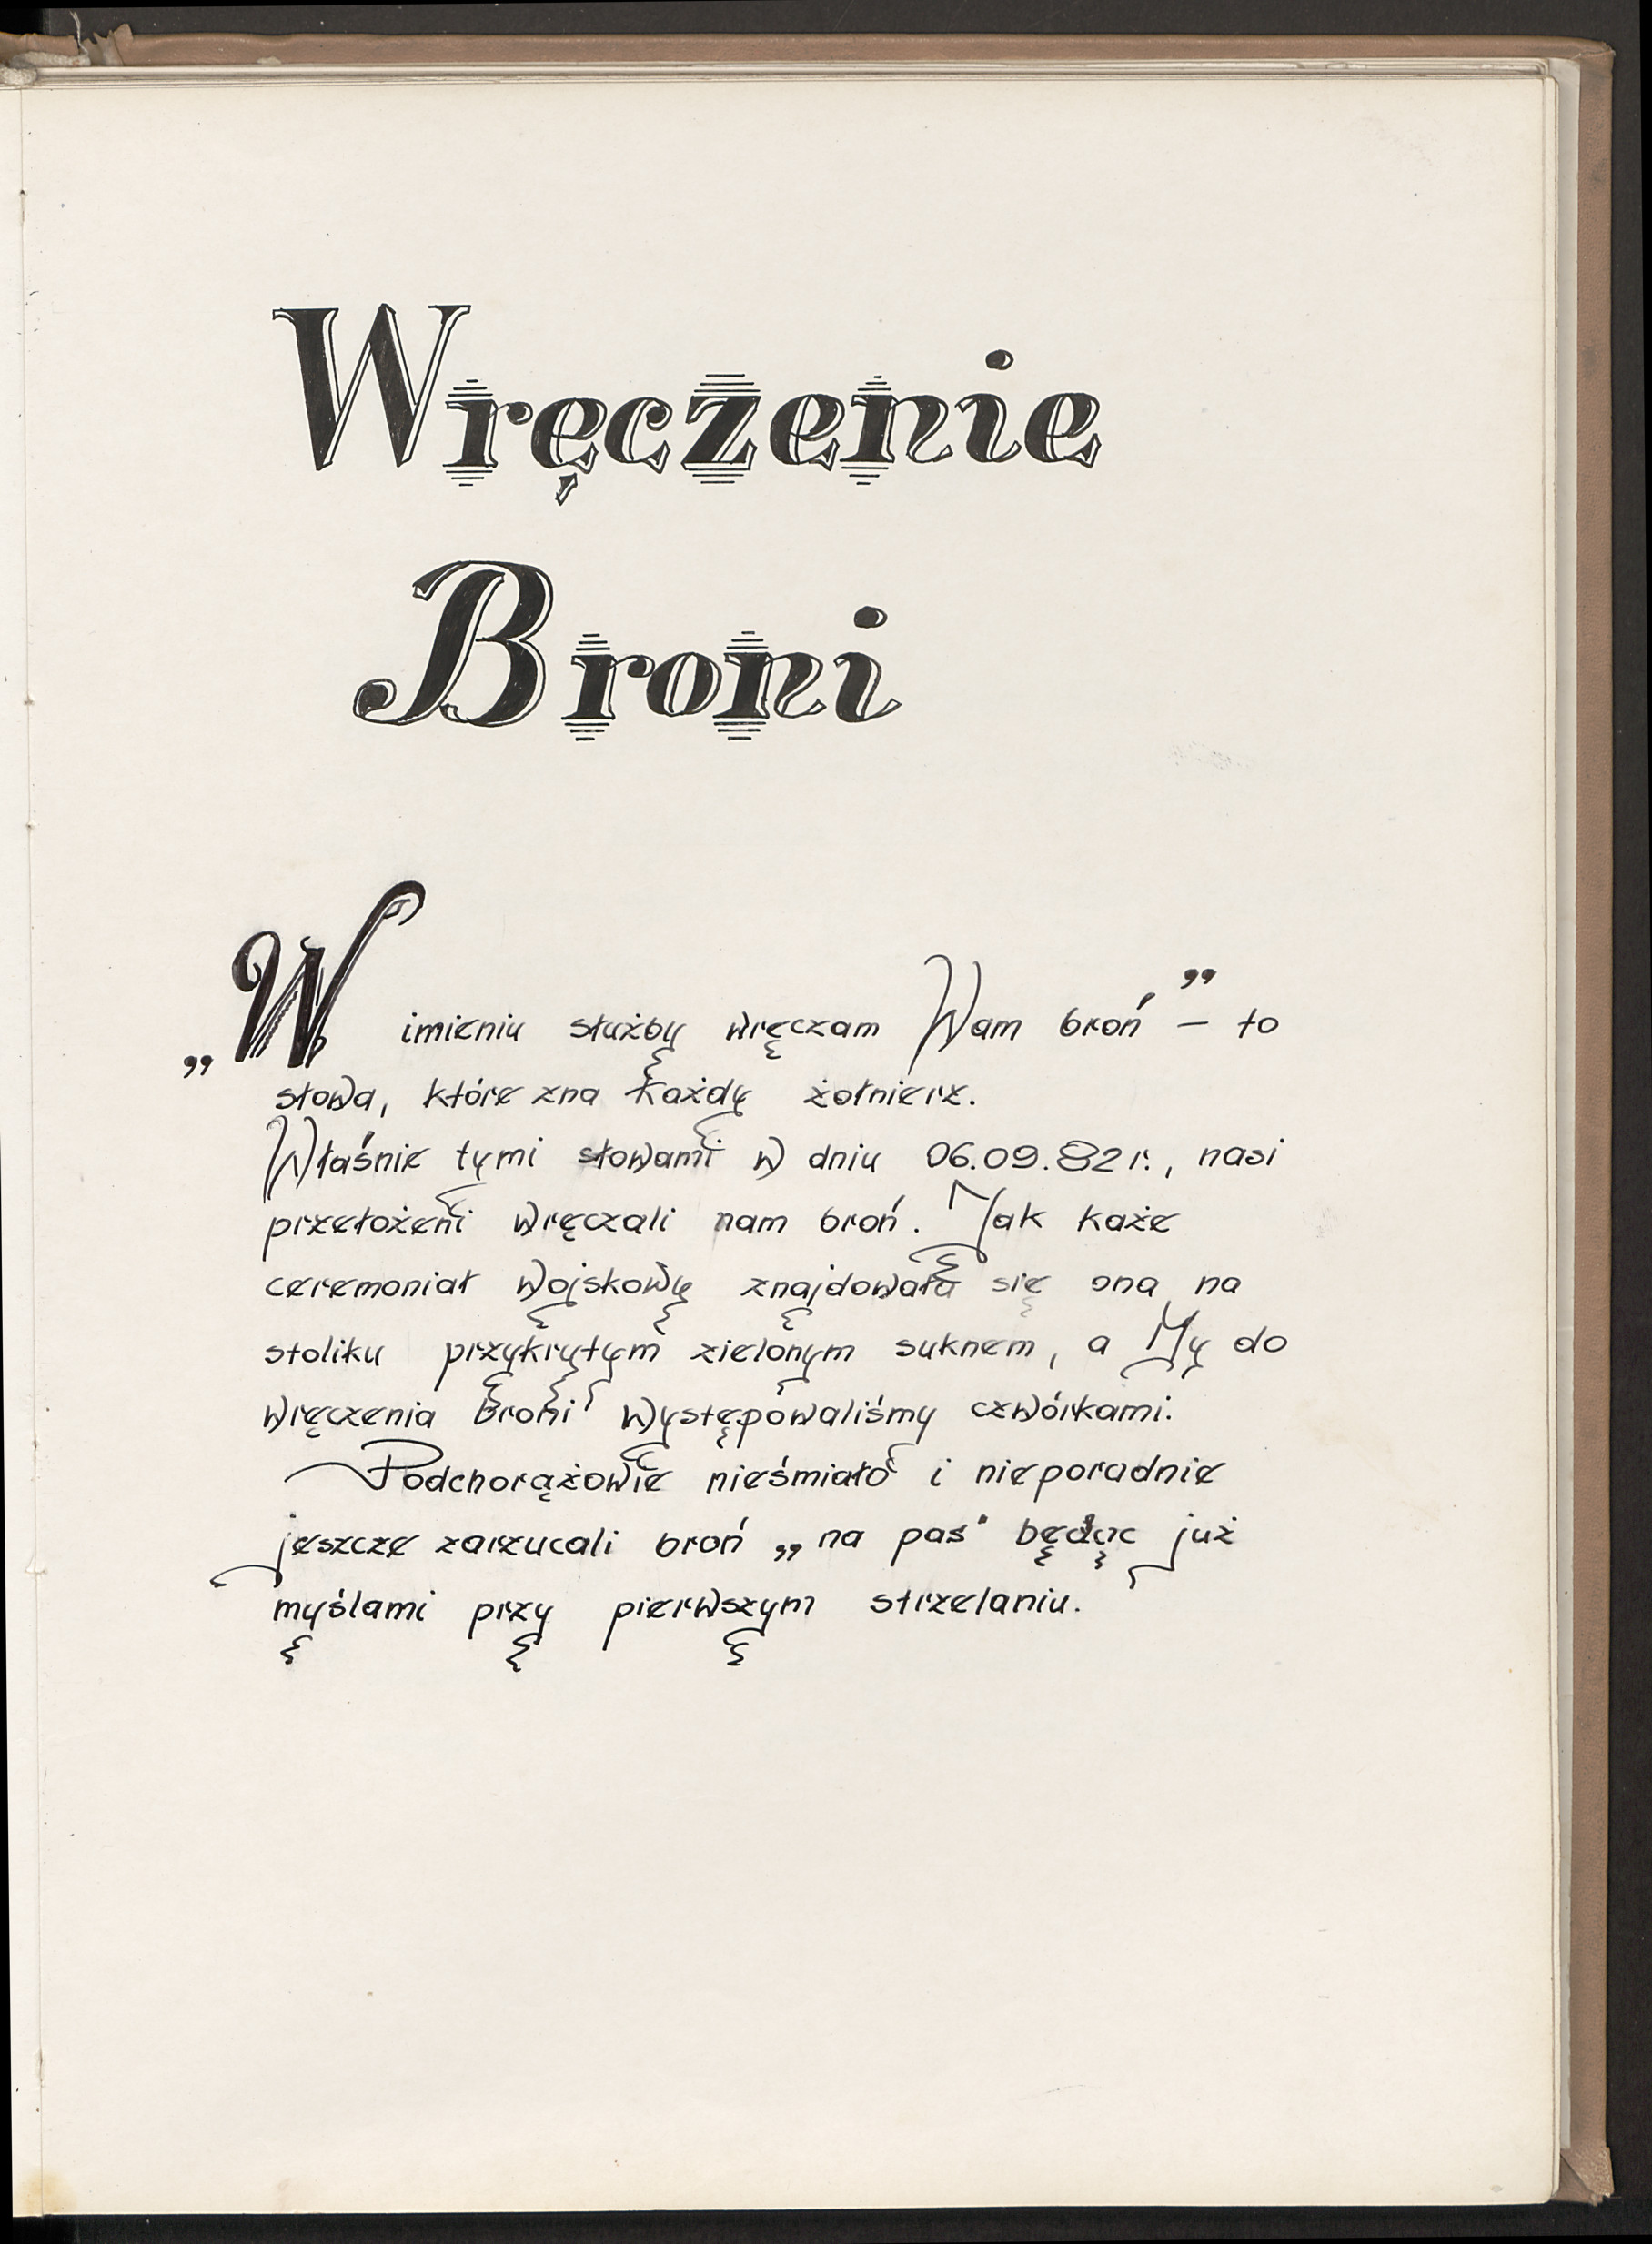 Wręczenie
Broni
„W imieniu służby wręczam Wam broń” – to
słowa, które zna każdy żołnierz.
Właśnie tymi słowami w dniu 06.09.82 r., nasi
przełożeni wręczali nam broń. Jak każe
ceremoniał wojskowy znajdowała się ona na
stoliku przykrytym zielonym suknem, a My do
wręczenia broni występowaliśmy czwórkami.
Podchorążowie nieśmiało i nieporadnie
jeszcze zarzucali broń „na pas" będąc już
myślami przy pierwszym strzelaniu.